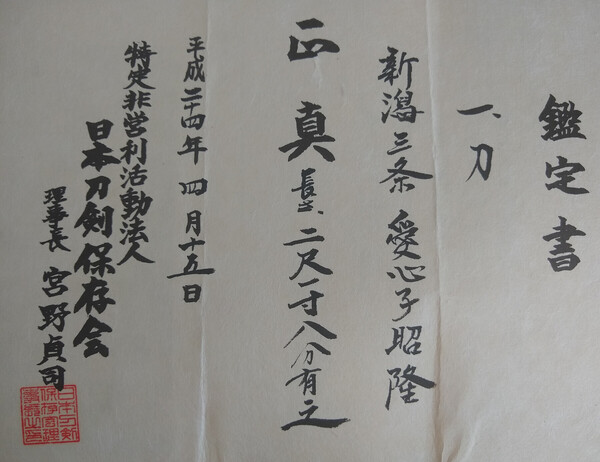 鑑定書
一、刀
新潟三条 愛心子昭隆
正真 長サ、二尺一寸八分有之
平成二十四年四月十五日
特定非営利活動法人
日本刀剣保存会
理事長 宮野貞司